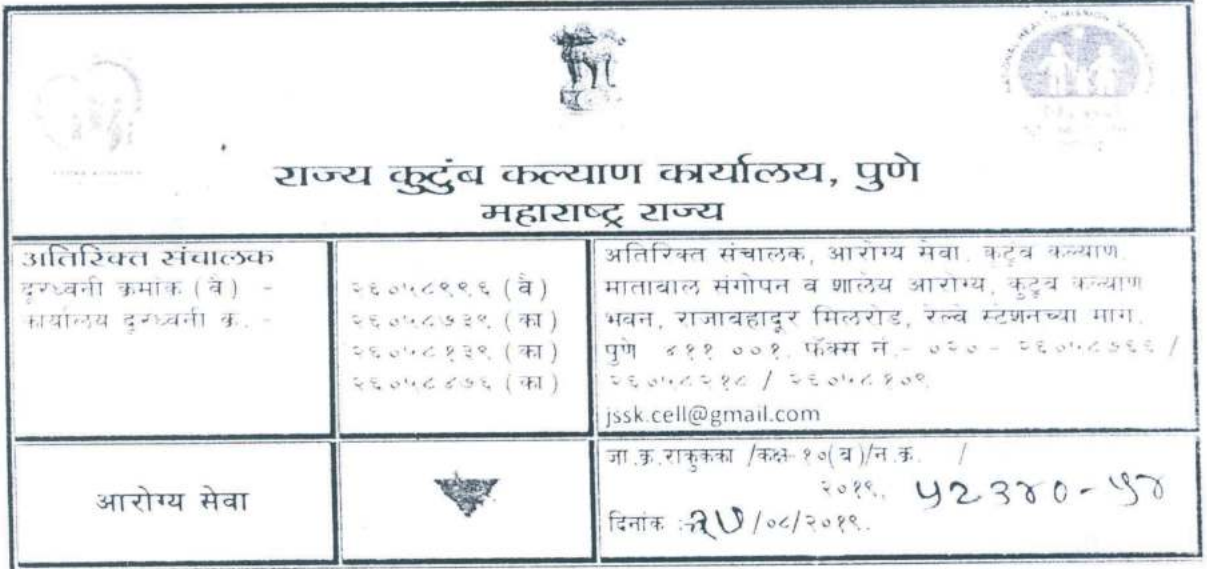 राज्य कुटुंब कल्याण कार्यालय, पुणे
महाराष्ट्र राज्य
अतिरिक्त संचालक
दूरध्वनी क्रमांक (वै) -
कार्यालय दूरध्वनी क्र. -
२६०५८९९६ (वै)
२६०५८७३९ (का)
२६०५८१३९ (का)
२६०५८४७६ (का)
अतिरिक्त संचालक, आरोग्य सेवा, कुटुंब कल्याण,
माताबाल संगोपन व शालेय आरोग्य, कुटुंब कल्याण
भवन, राजाबहादूर मिलरोड, रेल्वे स्टेशनच्या मागे,
पुणे ४११ ००१. फॅक्स नं.- ०२० - २६०५८७६६ /
२६०५८२१८ / २६०५८१०९
jssk.cell@gmail.com
आरोग्य सेवा
जा.क्र.राकुकका /कक्ष-१०(ब)/न.क्र. /
२०१९, ५२३४०-५४
दिनांक :- /०८/२०१९.